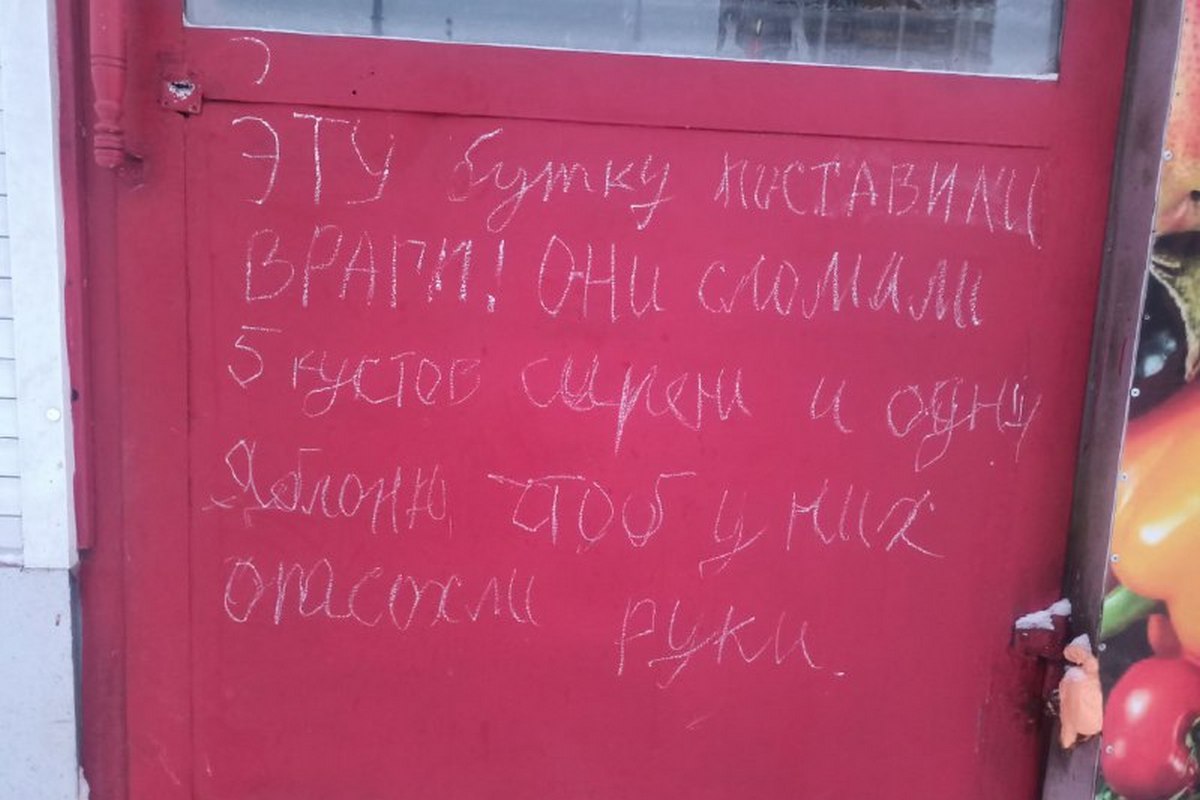 ЭТУ бутку поставили
ВРАГИ! ОНИ сломали
5 кустов сирени и одну
Яблоню чтоб у них
отасохли руки